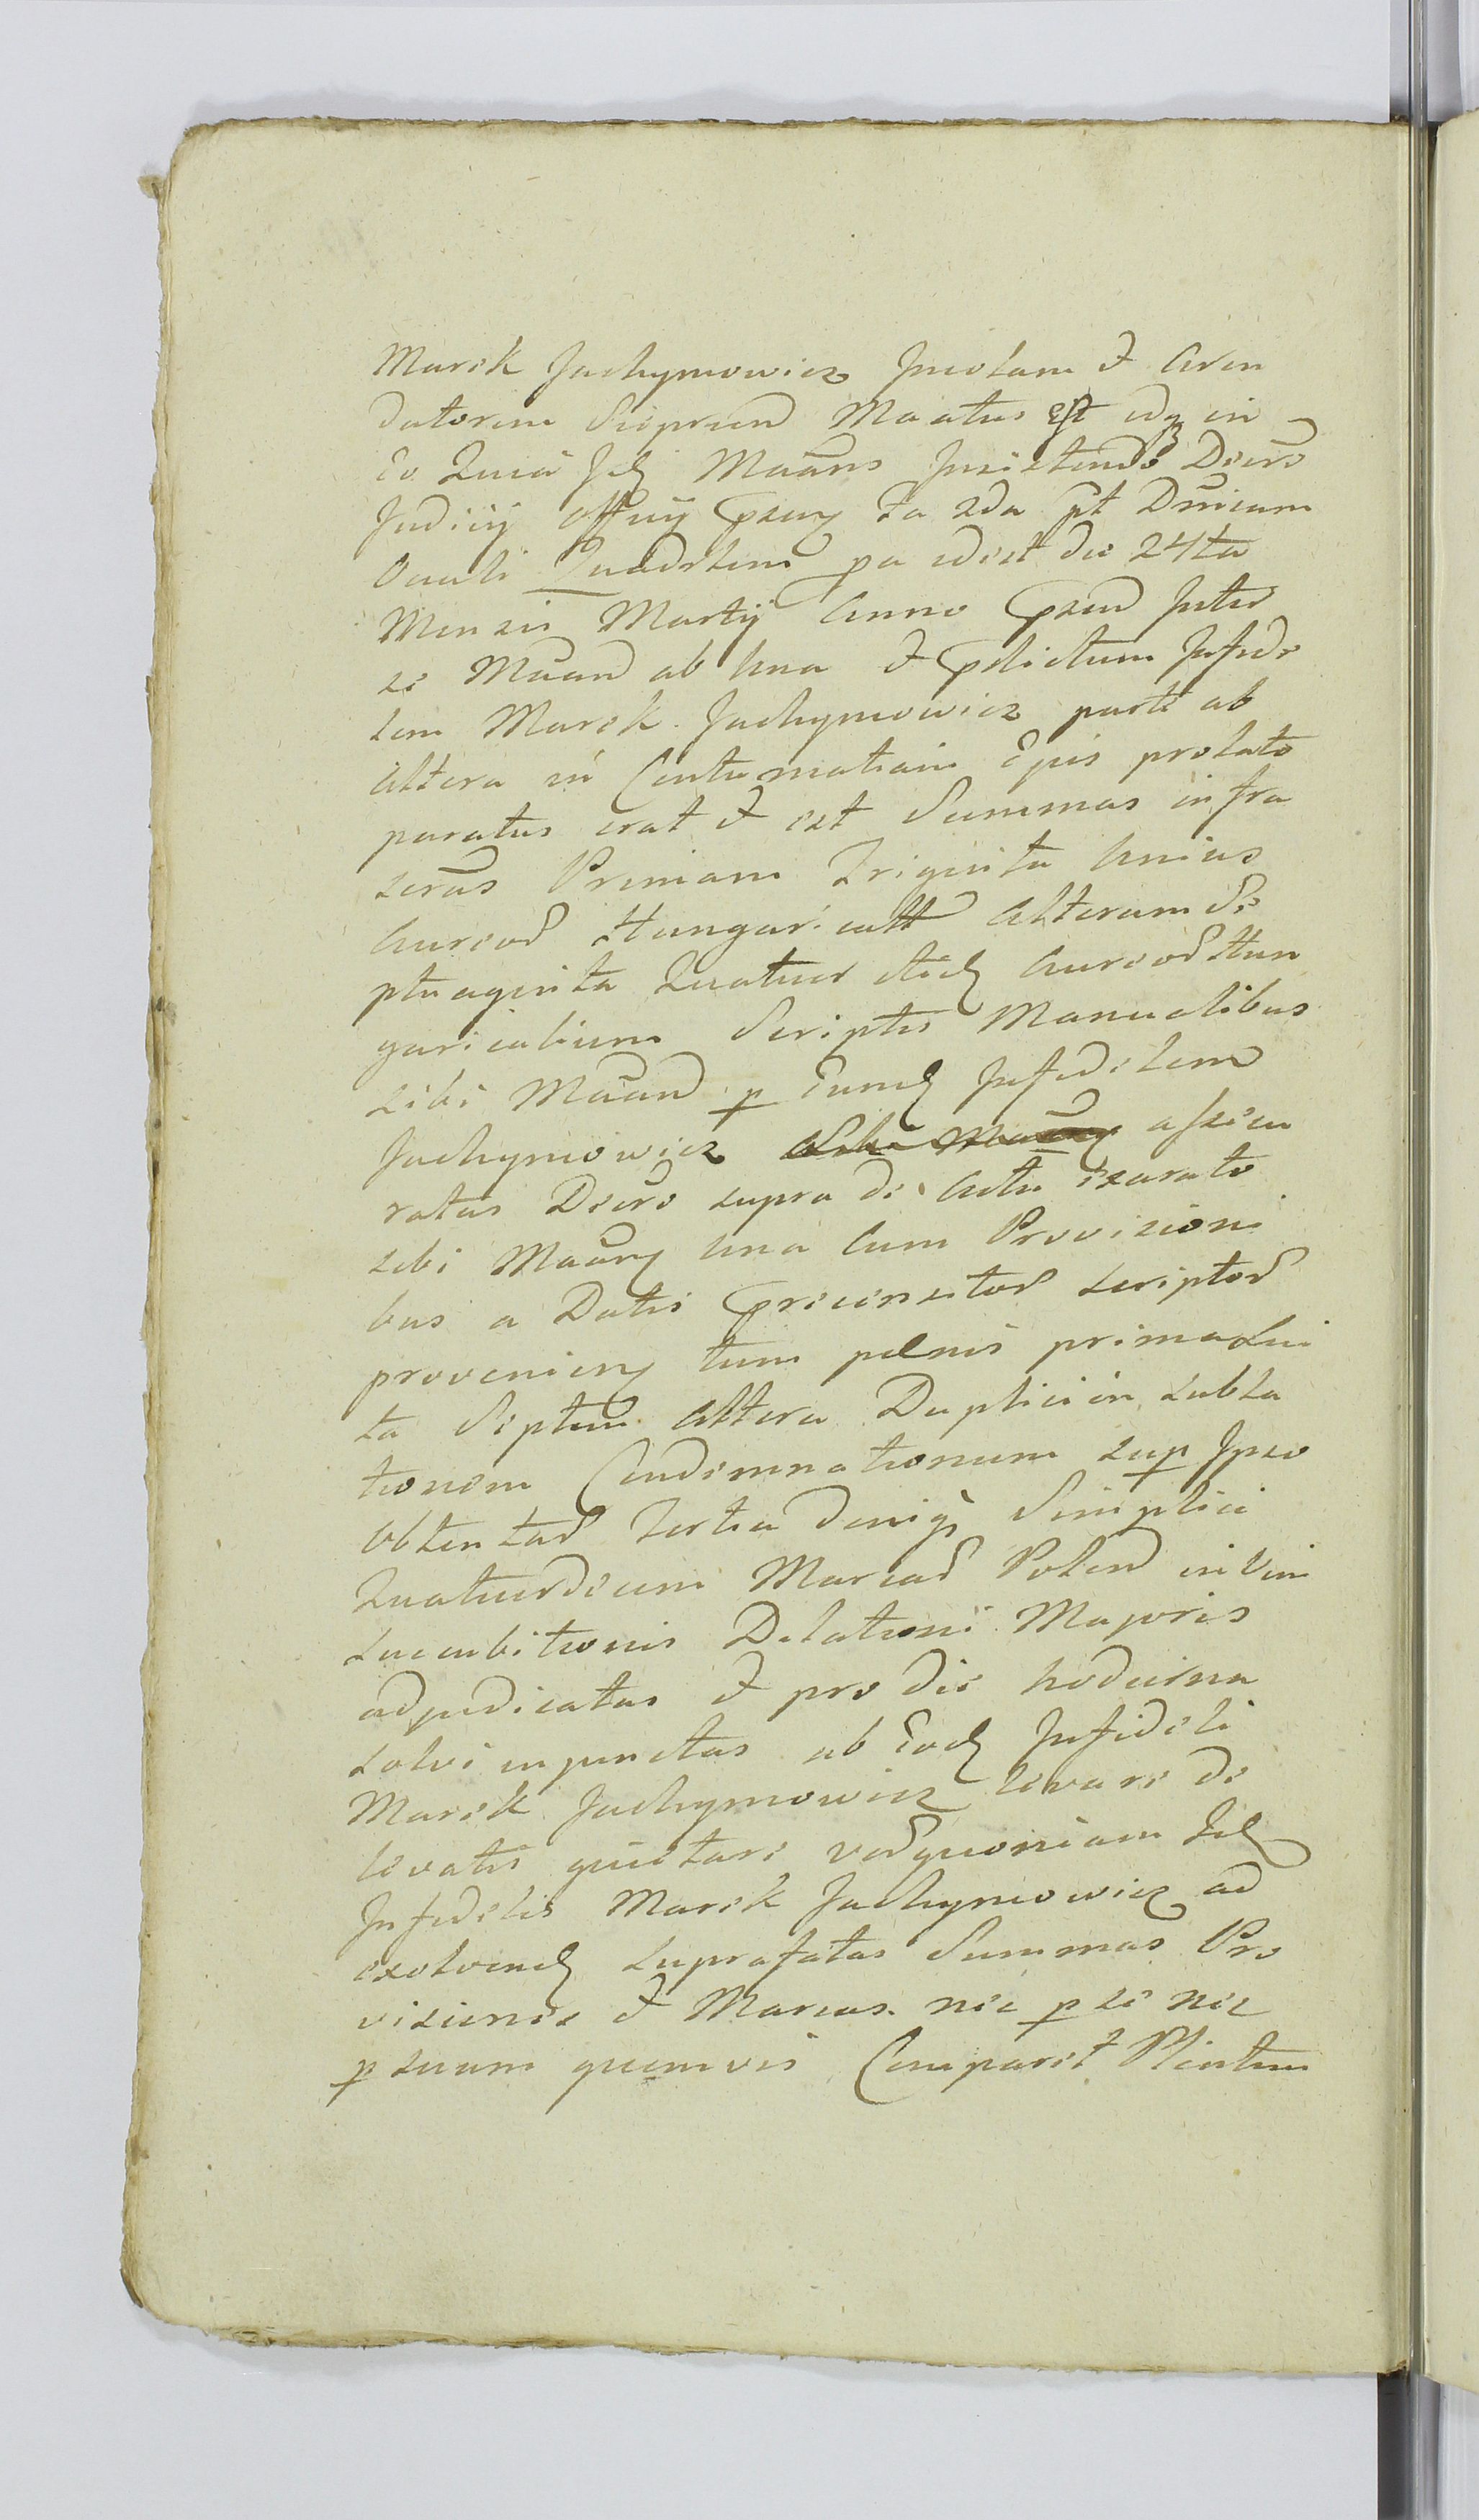 Marek Jachymowicz Incolam & Aren
datorem Sieprcen Maatus Est idq in
Eo Quia Id Maans Insistendo Decro
Judicij Offcij psen ta 2da pt Dnicam
Oculi Quadrlem pa idest die 24ta
Mensis Martij Anno psen Inter
se Maan ab Una & pdictum Infide
lem Marek Jachymowicz parte ab
altera in Contumatiam Ejus prolato
paratus erat & est Summas infra
scras Primam Triginta Unius
Aureor Hungaricall Alteram Se
ptuaginta Quatuor itid Aureor Hun
garicalium Scriptis Manualibus
sibi Maan p Eund Infidelem
Jachymowicz assecu
ratas Decro supra de Actu Exarato
sibi Maan una Cum Provisioni
bus a Datis precensitor scriptor
provenien tum pænis prima Lui
ta Septem Altera Duplici in subla
tionem Condemnationum sup Ipso
Obtentar Tertia deniq Simplici
Quatuordecim Marcar Polon in Vim
succubitionis Delationi Majoris
adjudicatas & pro die hodierna
solvi injunctas ab Eod Infideli
Marek Jachymowicz levare de
levatis quietare verquoniam Id
Infidelis Marek Jachymowicz ad
exolvend suprafatas Summas Pro
visiones & Marcas nec p se nec
p suum quemvis Comparet Plentum